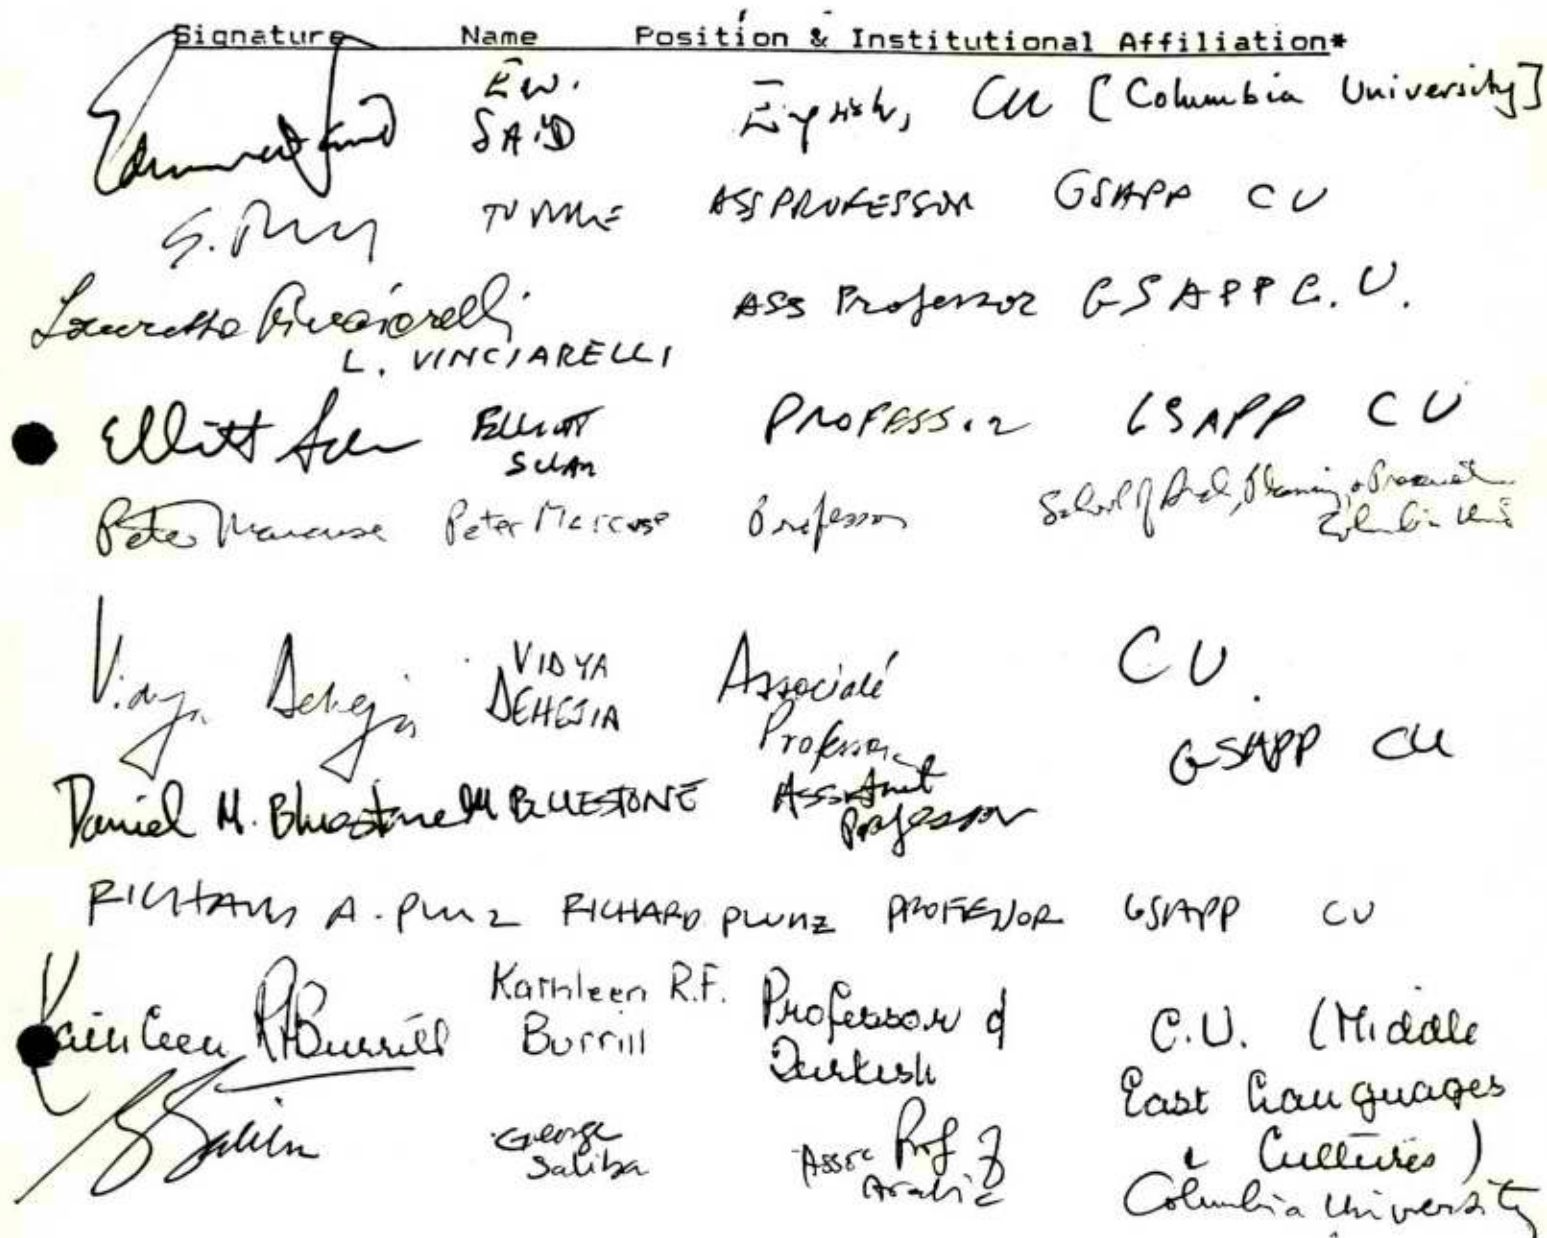 Signature Name Position & Institutional Affiliation*
E.W. SAID English, CU [Columbia University]
ASS PROFESSOR GSAPP CU
Lauretta Vinciarelli ASS Professor GSAPP C.U.
L. VINCIARELLI
Elliott Sclar ELLIOTT SCLAR PROFESSOR GSAPP CU
Peter Marcuse Peter Marcuse Professor School of Arch, Planning, & Preservat
Columbia Univ
Vidya Dehejia VIDYA DEHEJIA Associate Professor CU.
Daniel M. Bluestone DM BLUESTONE Assistant Professor GSAPP CU
RICHARD A. PLUNZ RICHARD PLUNZ PROFESSOR GSAPP CU
Kathleen RF Burrill Kathleen R.F. Burrill Professor of Turkish C.U. (Middle
East Languages
& Cultures)
G Saliba George Saliba Assoc Prof of Arabic Columbia University